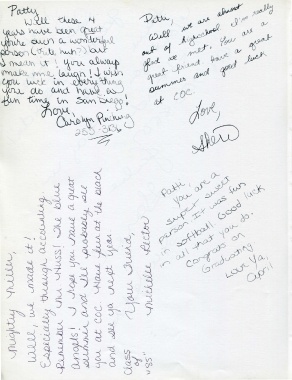 Patty
Well these 4
years have been great
you're such a wonderful
person (cute huh) but
I mean it! You always
make me laugh! I wish
you luck in everything
you do and have a
fun time in San Diego!
Love,
Carolyn
Patti,
Well we are almost
out of highschool I'm really
glad we met. You are a
great friend. Have a great
summer and good luck
at COC.
Love,
Sheri
Mighty Miller,
Well, we made it!
Especially through accounting
Remember Mr. Huss! The blue
angels! I hope you have a great
summer and I'll probably see
you at COC. Have fun at the beach
and see ya next year
Your friend,
Michelle Rector
Class
of
"85"
Patti,
You are a
super sweet
person It was fun
in softball Good luck
in all that you do.
Congrats on
Graduating
Love Ya,
April